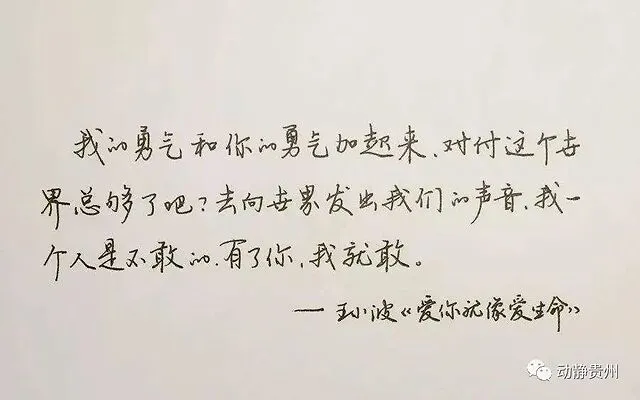 我的勇气和你的勇气加起来，对付这个世
界总够了吧？去向世界发出我们的声音，我一
个人是不敢的，有了你，我就敢。
——王小波《爱你就像爱生命》
动静贵州